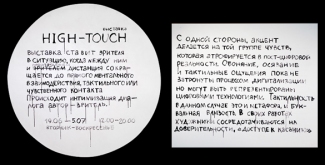 выставка
HIGH-TOUCH
выставка ставит зрителя
в ситуацию, когда между ним
и зрителем дистанция сокра-
щается до прямого ментального
взаимодействия, тактильного или
чувственного контакта
Происходит интимизация диа-
лога автор – зритель.
19.06 – 5.07
С одной стороны, акцент
делается на той группе чувств,
которая атрофируется в пост-цифровой
реальности. Обоняние, осязание
и тактильные ощущения пока не
затронуты процессом дигитализации
но могут быть репрезентированы
цифровыми технологиями. Тактильность
в данном случае это и метафора и бук-
вальная. В своих работах
художники сосредотачиваются на
доверительности, «доступе к касанию»